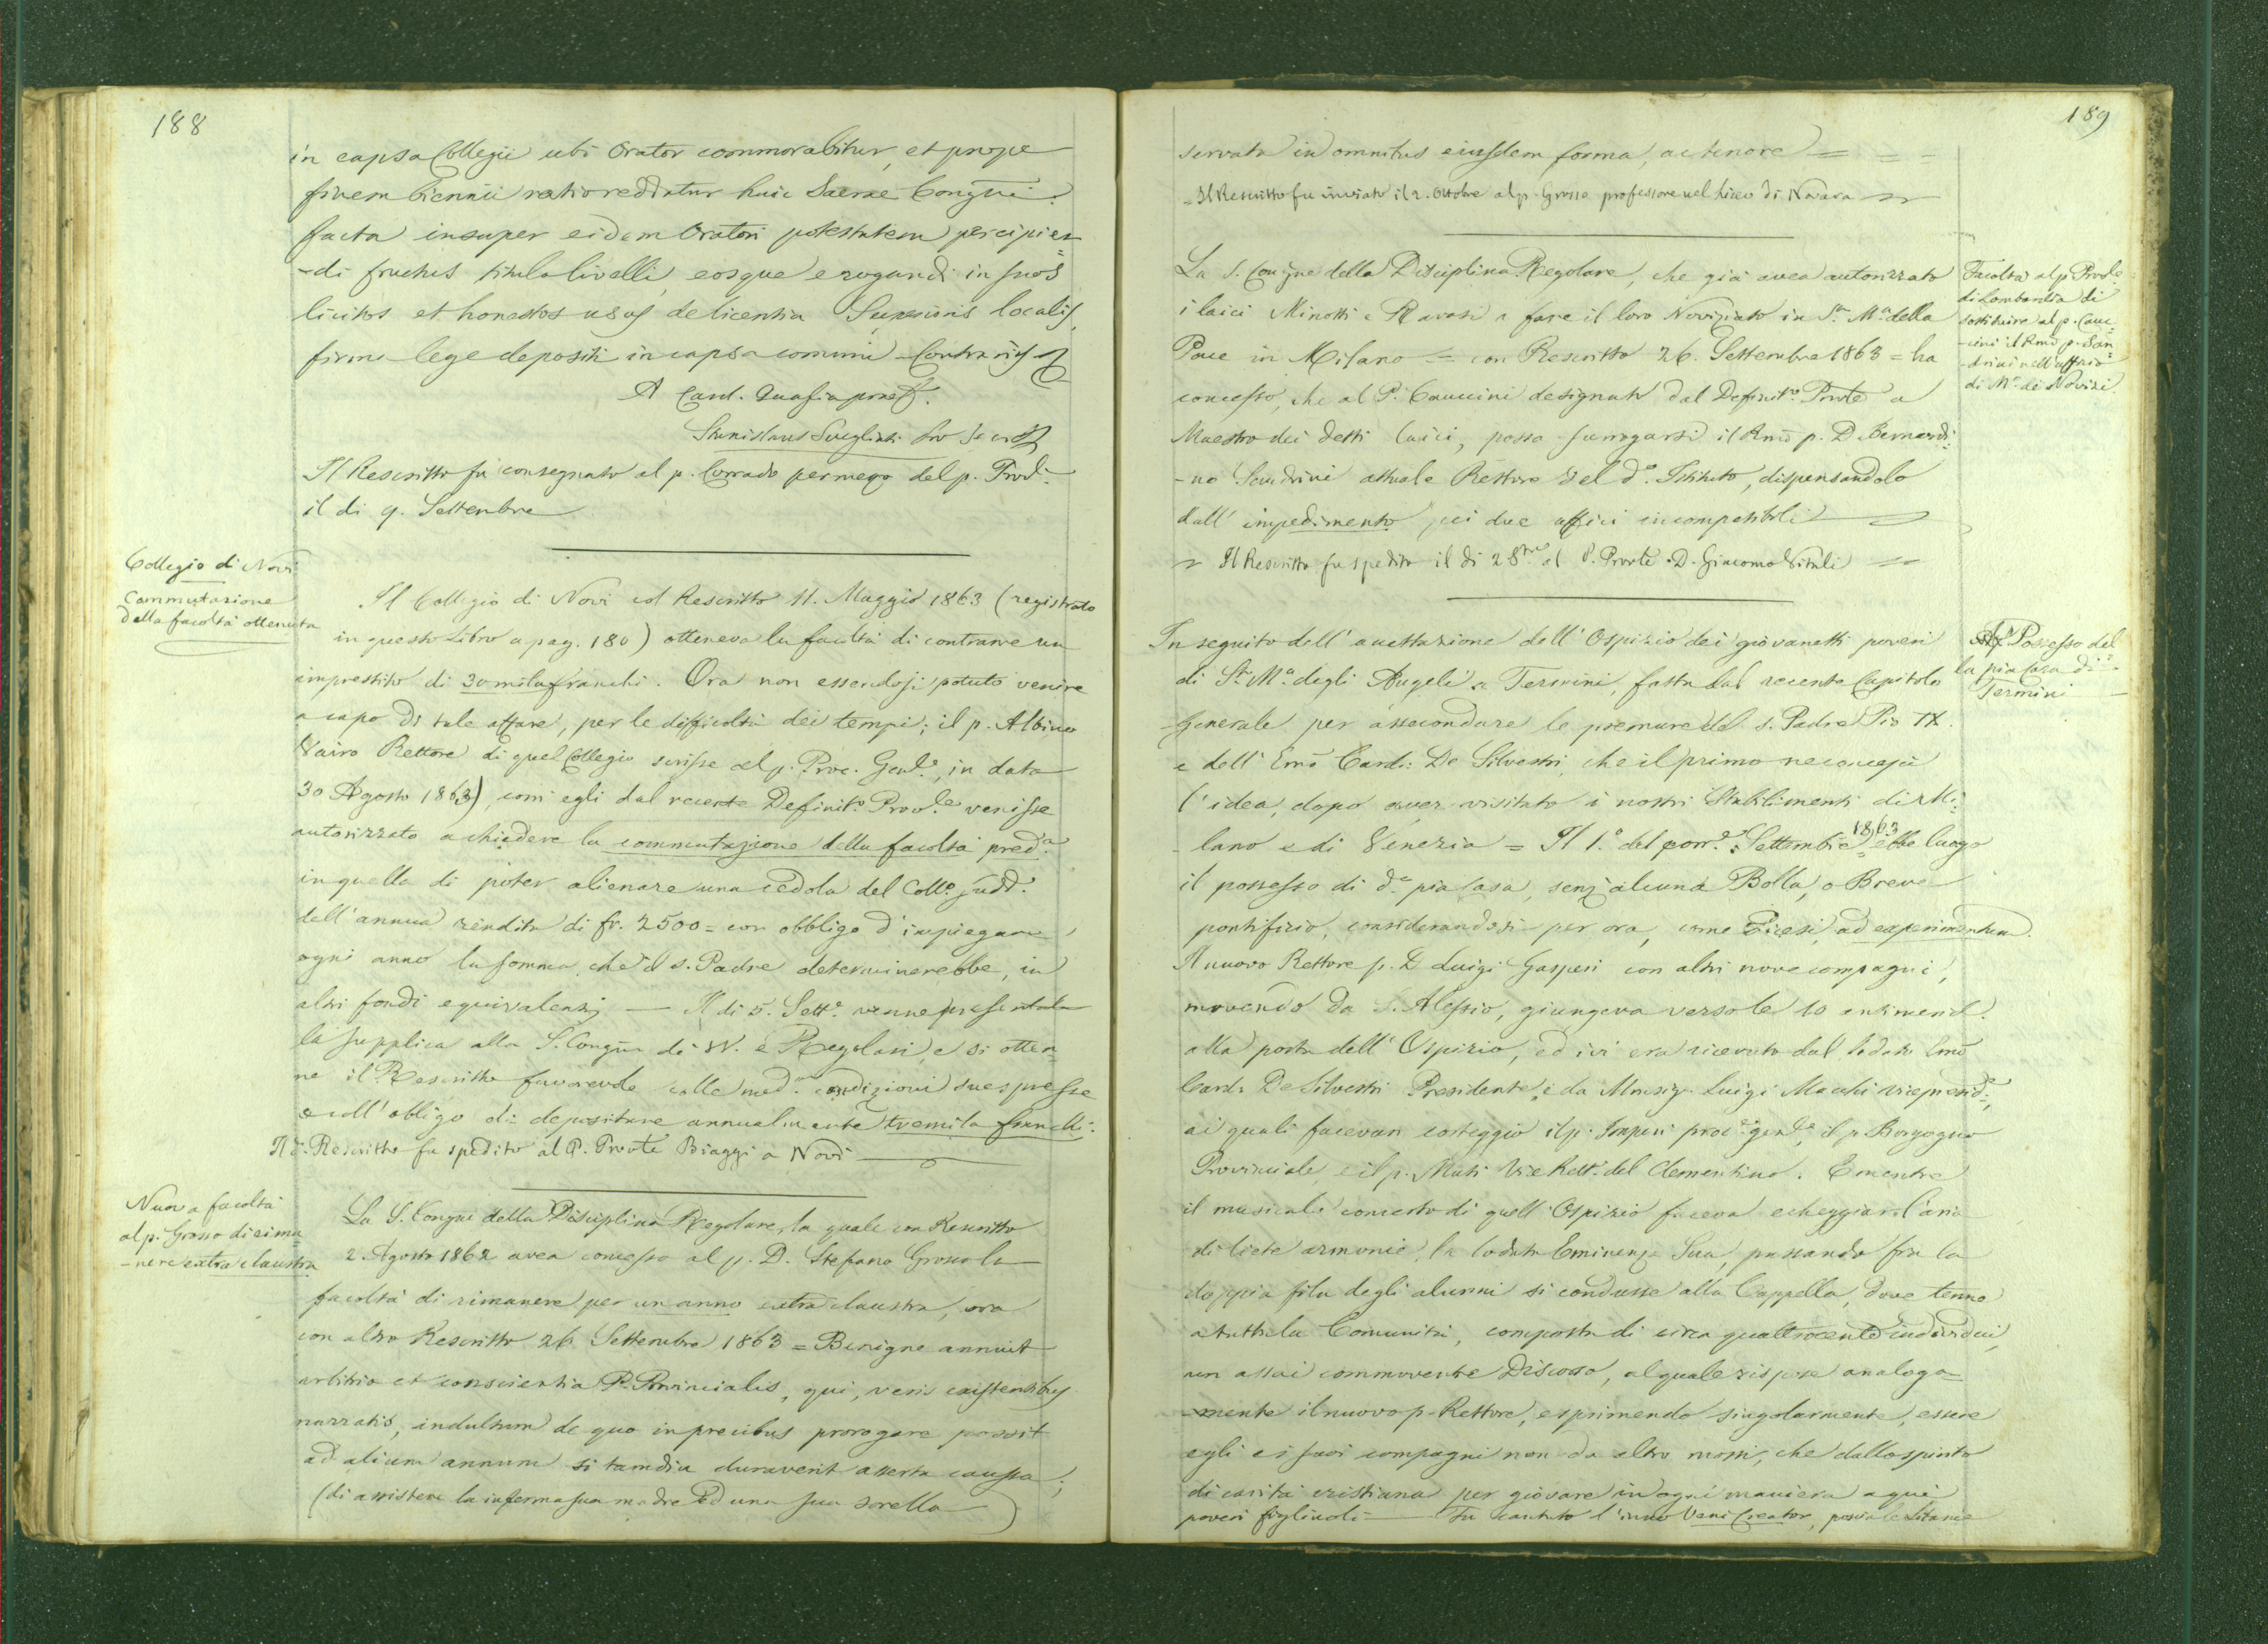 188
in capsa Collegii ubi Orator commorabitur, et prope
finem biennii ratio reddatur huic Sacrae Congni.
facta insuper eidem Oratori potestatem percipien
-di fructus titulo livelli, eosque erogandi in suos
licitos et honestos usus de licentia Superioris localis,
firma lege depositi in capsa comuni - Contrariis
A Card. Quaglia praef.
Stanislaus Svegliati Pro Secr.
Il Rescritto fu consegnato al p. Corrado per mezzo del p. Prov.
il di 9. Settembre
Collegio di Novi
Commutazione
della facoltà ottenuta
Il Collegio di Novi col Rescritto 11. Maggio 1863 (registrato
in questo Libro a pag. 180) otteneva la facoltà di contrarre un
imprestito di 30 mila franchi. Ora non essendosi potuto venire
a capo di tale affare, per le difficoltà dei tempi; il p. Albino
Vairo Rettore di quel Collegio scrisse al p. Proc. Genle, in data
30 Agosto 1863), com' egli dal recente Definito. Provle. venisse
autorizzato a chiedere la commutazione della facoltà preda.
in quella di poter alienare una cedola del Collo. sudd.
dell' annua rendita di fr. 2500 = con obbligo d' impiegare
ogni anno la somma, che il s. Padre determinerebbe, in
altri fondi equivalenti — Il di 5. Sette. venne presentata
la supplica alla S. Congne de VV. e Regolari, e si otten
ne il Rescritto favorevole colle mede. condizioni suespresse
e coll' obligo di depositare annualmente tremila franchi.
Il d. Rescritto fu spedito al P. Provle Biaggi a Novi
Nuova facoltà
al p. Grosso di rima
-nere extra claustra
La S. Congne della Disciplina Regolare, la quale con Rescritto
2. Agosto 1862 avea concesso al p. D. Stefano Grosso la
facoltà di rimanere per un anno extra claustra, ora
con altro Rescritto 26 Settembre 1863 = Benigne annuit
arbitrio et conscientia P. Provincialis, qui, veris existentibus
narratis, indultum de quo in precibus prorogare possit
ad alium annum si tamdiu duraverit asserta caussa;
(di assistere la inferma sua madre ed una sua sorella)
189
servata in omnibus eiusdem forma, ac tenore = = =
= Il Rescritto fu inviato il 2. Ottobre al p. Grosso professore nel Liceo di Novara
Facoltà al p. Provle
di Lombardia di
sostituire al p. Cauc
-cini il Rmo p. San
-drini nell' uffizio
di Mo. dei Novizi
La S. Congne della Disciplina Regolare, che già avea autorizzato
i laici Minotti e Ravasi a fare il loro Noviziato in Sta. Ma. della
Pace in Milano = con Rescritto 26. Settembre 1863 = ha
concesso, che al P. Cauccini designato dal Definito. Provle a
Maestro dei detti laici, possa surrogarsi il Rmo p. D Bernardi
-no Sandrini attuale Rettore del do. Istituto, dispensandolo
dall' impedimento pei due uffici incompatibili
= Il Rescritto fu spedito il di 28bre al P. Provle D. Giacomo Vitali =
Possesso del
la pia casa di
Termini
In seguito dell' accettazione dell' Ospizio dei giovanetti poveri
di Sta. Ma. degli Angeli a Termini, fatta dal recente Capitolo
Generale per assecondare le premure del s. Padre Pio IX.
e dell' Emo Card. De Silvestri, che il primo ne concepì
l' idea, dopo aver visitato i nostri Stabilimenti di Mi
-lano e di Venezia = Il 1o. del corre. Settembre 1863 ebbe luogo
il possesso di da. pia casa, senz' alcuna Bolla, o Breve
pontificio, considerandosi per ora, come dicesi, ad experimentum.
Il nuovo Rettore p. D Luigi Gasperi con altri nove compagni,
movendo da S. Alessio, giungeva verso le 10 antimerid.
alla porta dell' Ospizio, ed ivi era ricevuto dal lodato Emo
Card. De Silvestri Presidente, e da Monsigr. Luigi Macchi vicepreside.,
ai quali facevan corteggio il p. Imperi proc. genle, il p. Borgogno
Provinciale, e il p. Muti Vice Rett. del Clementino. E mentre
il musicale concerto di quell' Ospizio faceva echeggiar l' aria
di liete armonie, la lodata Eminenza Sua, passando fra la
doppia fila degli alunni si condusse alla Cappella, dove tenne
a tutta la Comunità, composta di circa quattrocento individui,
un assai commovente Discorso, al quale rispose analoga
-mente il nuovo p. Rettore, esprimendo singolarmente, essere
egli e i suoi compagni non da altro mossi, che dallo spirito
di carità cristiana per giovare in ogni maniera a quei
poveri figliuoli — Fu cantato l' inno Veni Creator, poscia le Litanie